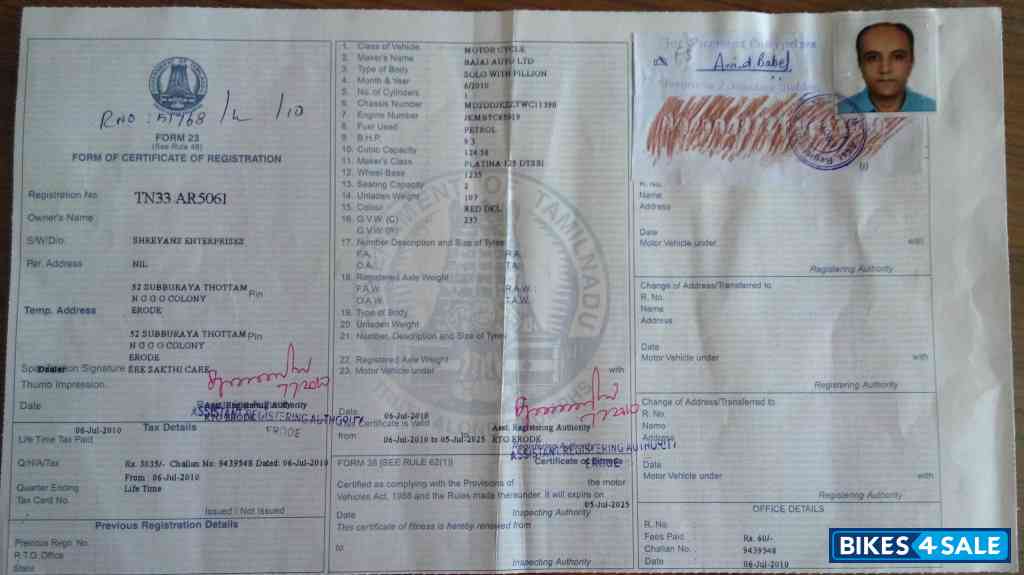 R NO : 51768 /L /10
FORM 23
(See Rule 48)
FORM OF CERTIFICATE OF REGISTRATION
Registration No. TN33 AR5061
Owner's Name
S/W/D/o. SHREYANS ENTERPRISES
Per. Address NIL
52 SUBBURAYA THOTTAM Pin
N G G O COLONY
Temp. Address ERODE
52 SUBBURAYA THOTTAM Pin
N G G O COLONY
ERODE
Signature SRE SAKTHI CARE
Dealer
Thumb Impression.
Date Asst. Registering Authority
RTO ERODE
ASSISTANT REGISTERING AUTHORITY
ERODE
06-Jul-2010 Tax Details
Life Time Tax Paid
Q/H/A/Tax Rs. 3035/- Challan No: 9439548 Dated: 06-Jul-2010
From : 06-Jul-2010
Quarter Ending Life Time
Tax Card No.
Issued / Not Issued
Previous Registration Details
Previous Regn. No.
R.T.O. Office
State
1. Class of Vehicle MOTOR CYCLE
2. Maker's Name BAJAJ AUTO LTD
3. Type of Body SOLO WITH PILLION
4. Month & Year 6/2010
5. No. of Cylinders 1
6. Chassis Number
7. Engine Number
8. Fuel Used PETROL
9. B.H.P.
10. Cubic Capacity
11. Maker's Class PLATINA 125 DTSSI
12. Wheel Base 1235
13. Seating Capacity 2
14. Unladen Weight 107
15. Colour RED DKL
16. G.V.W. (C) 237
G.V.W. (R)
17. Number Description and Size of Tyres
F.A. R.A.
O.A. T.A.
18. Registered Axle Weight
F.A.W. R.A.W.
O.A.W. T.A.W.
19. Type of Body
20. Unladen Weight
21. Number, Description and Size of Tyres
22. Registered Axle Weight
23. Motor Vehicle under with
Date 06-Jul-2010
Certificate is Valid Asst. Registering Authority
from 06-Jul-2010 to 05-Jul-2025 RTO ERODE
Registering Authority
ASSISTANT REGISTERING AUTHORITY
ERODE
FORM 38 [SEE RULE 62(1)] Certificate of Fitness
Certified as complying with the Provisions of the motor
Vehicles Act, 1988 and the Rules made thereunder. It will expires on
05-Jul-2025
Date Inspecting Authority
This certificate of fitness is hereby renewed from
to
Inspecting Authority
GOVERNMENT OF TAMILNADU
R. No.
Name
Address
Date
Motor Vehicle under with
Registering Authority
Change of Address/Transferred to
R. No.
Name
Address
Date
Motor Vehicle under with
Registering Authority
Change of Address/Transferred to
R. No.
Name
Address
Date
Motor Vehicle under with
Registering Authority
OFFICE DETAILS
R. No.
Fees Paid Rs. 60/-
Challan No. 9439548
Date 06-Jul-2010
BIKES4SALE